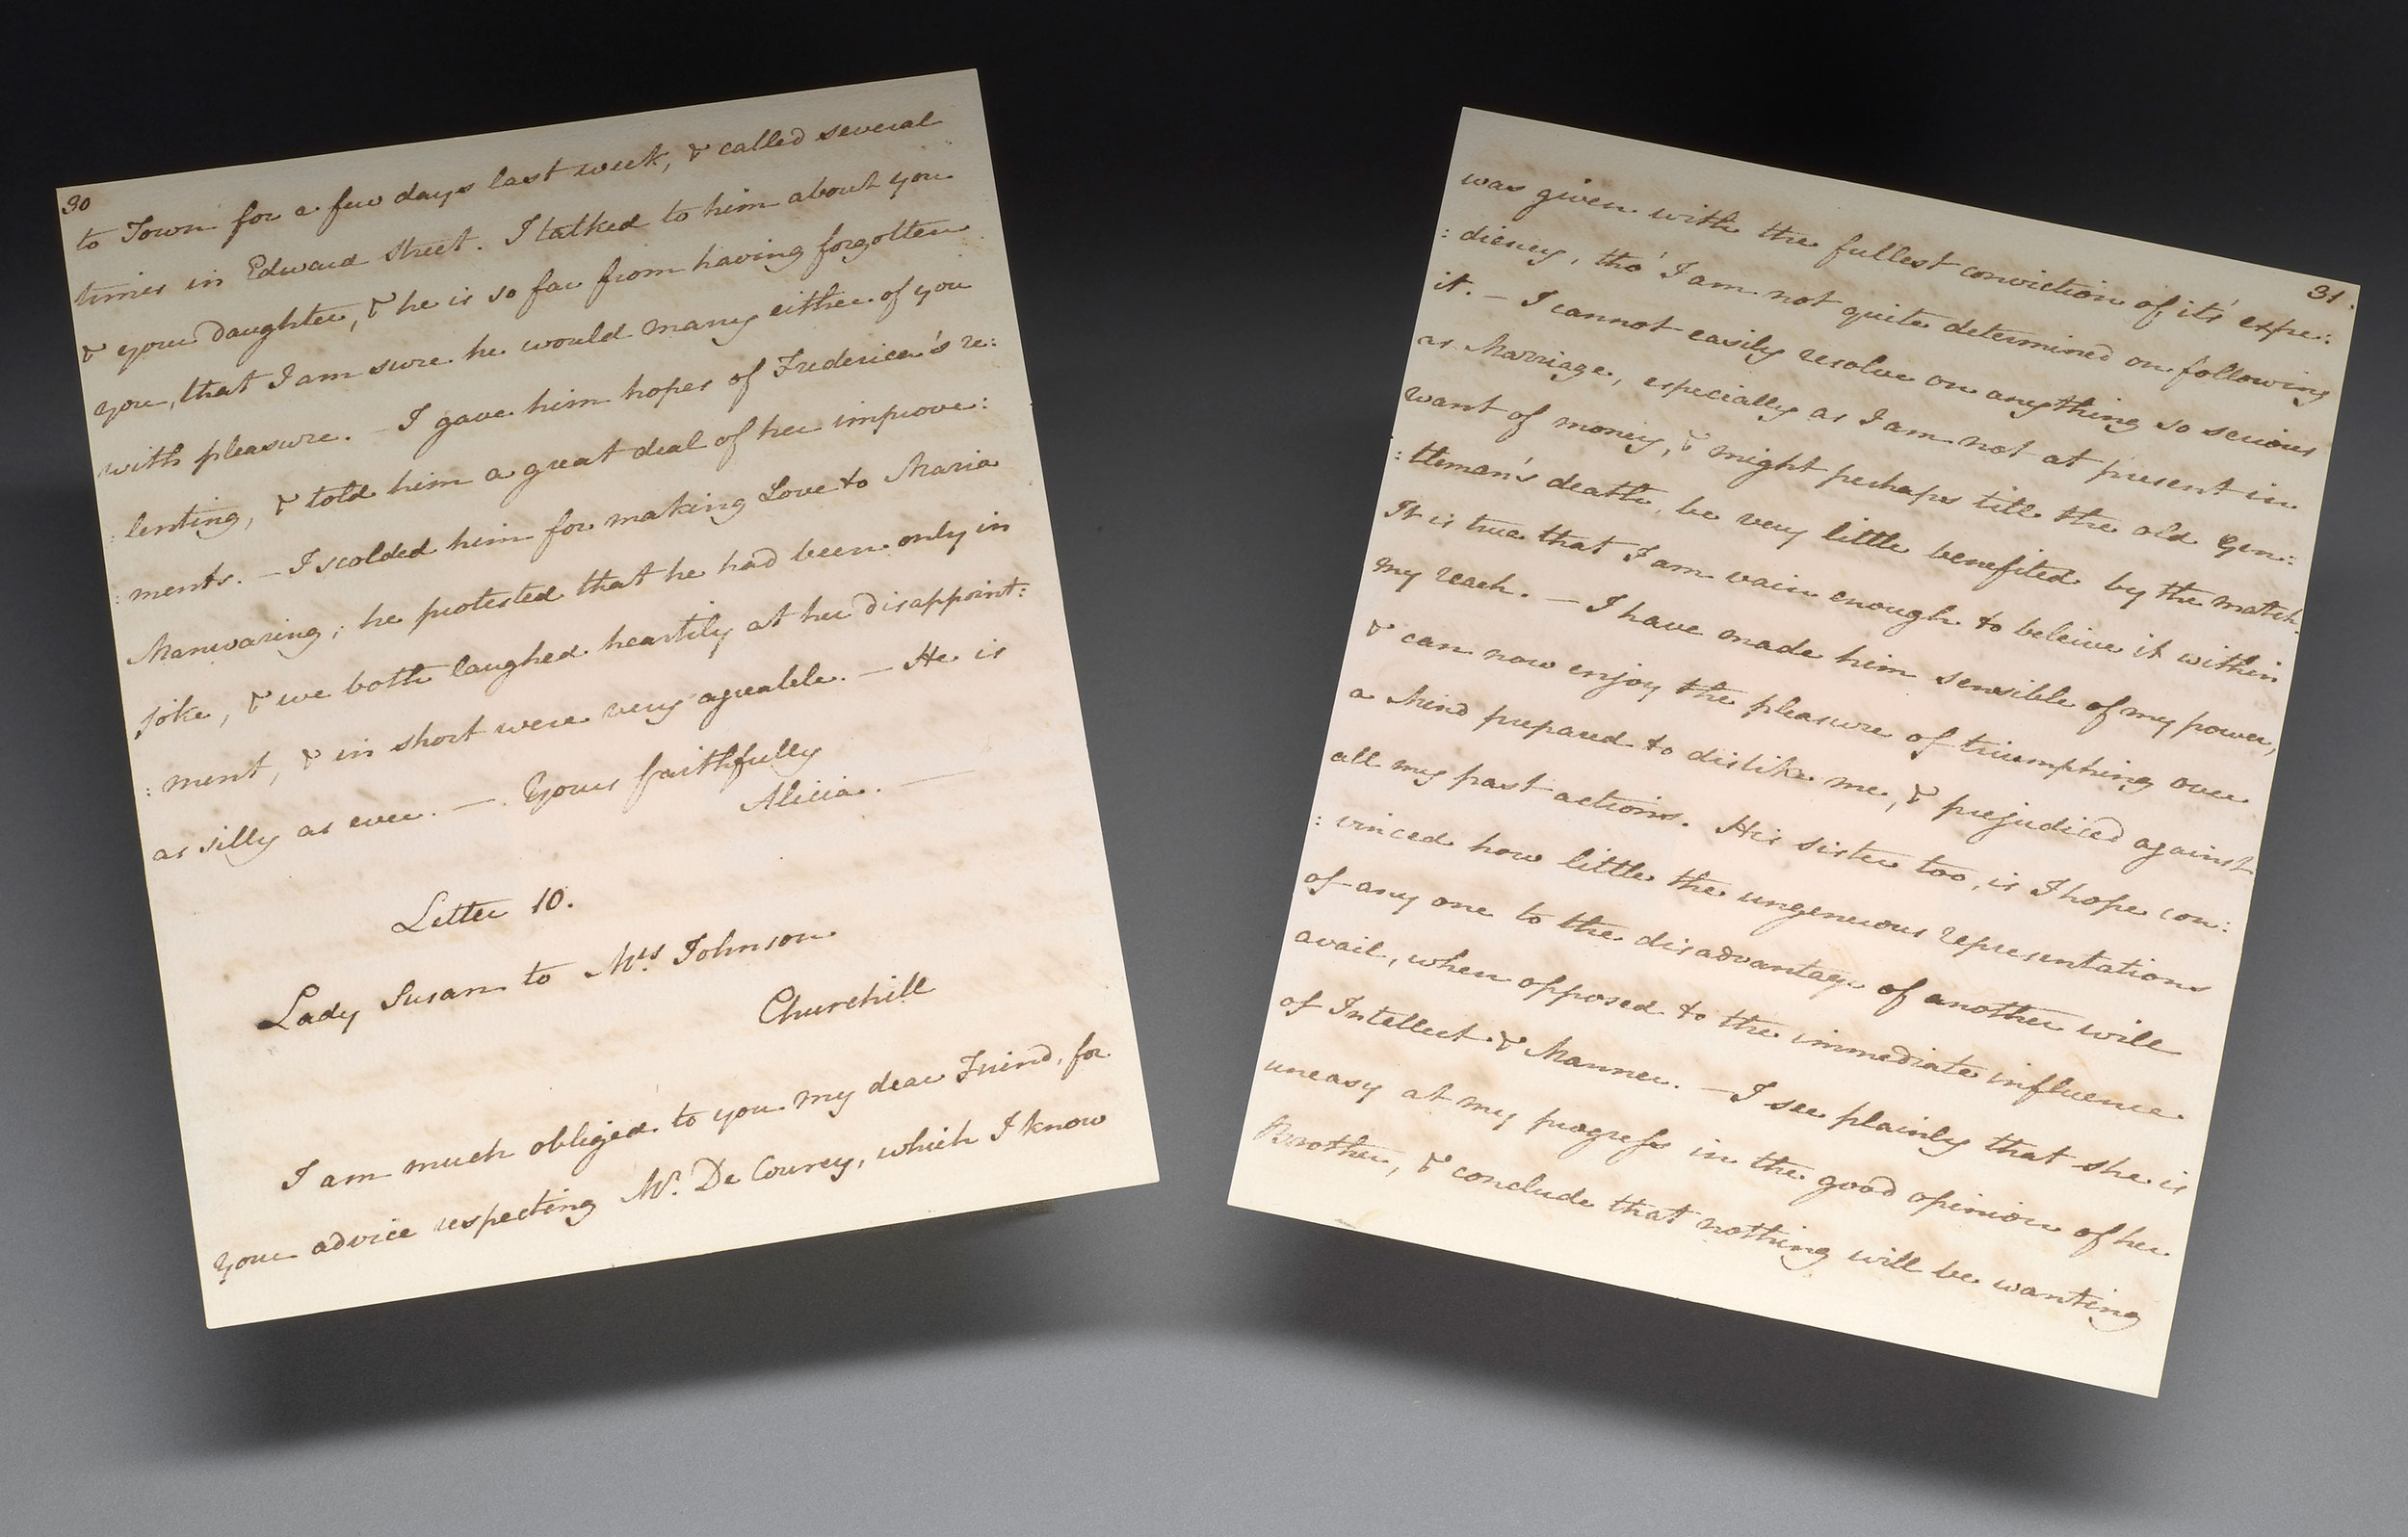 30
to Town for a few days last week, & called several
times in Edward Street. I talked to him about you
& your daughter, & he is so far from having forgotten
you, that I am sure he would marry either of you
with pleasure. – I gave him hopes of Frederica's re:
:lenting, & told him a great deal of her improve:
:ments. – I scolded him for making Love to Maria
Manwaring; he protested that he had been only in
joke, & we both laughed heartily at her disappoint:
:ment, & in short were very agreable. – He is
as silly as ever. – Yours faithfully
Alicia. –
Letter 10.
Lady Susan to Mrs. Johnson
Churchill
I am much obliged to you my dear Friend, for
your advice respecting Mr. De Courcy, which I know
31.
was given with the fullest conviction of it's expe:
:diency, tho' I am not quite determined on following
it. – I cannot easily resolve on anything so serious
as Marriage, especially as I am not at present in
want of money, & might perhaps till the old Gen:
:tleman's death, be very little benefited by the match.
It is true that I am vain enough to beleive it within
my reach. – I have made him sensible of my power,
& can now enjoy the pleasure of triumphing over
a Mind prepared to dislike me, & prejudiced against
all my past actions. His sister too, is I hope con:
:vinced how little the ungenerous representations
of any one to the disadvantage of another will
avail, when opposed to the immediate influence
of Intellect & Manner. – I see plainly that she is
uneasy at my progress in the good opinion of her
Brother, & conclude that nothing will be wanting